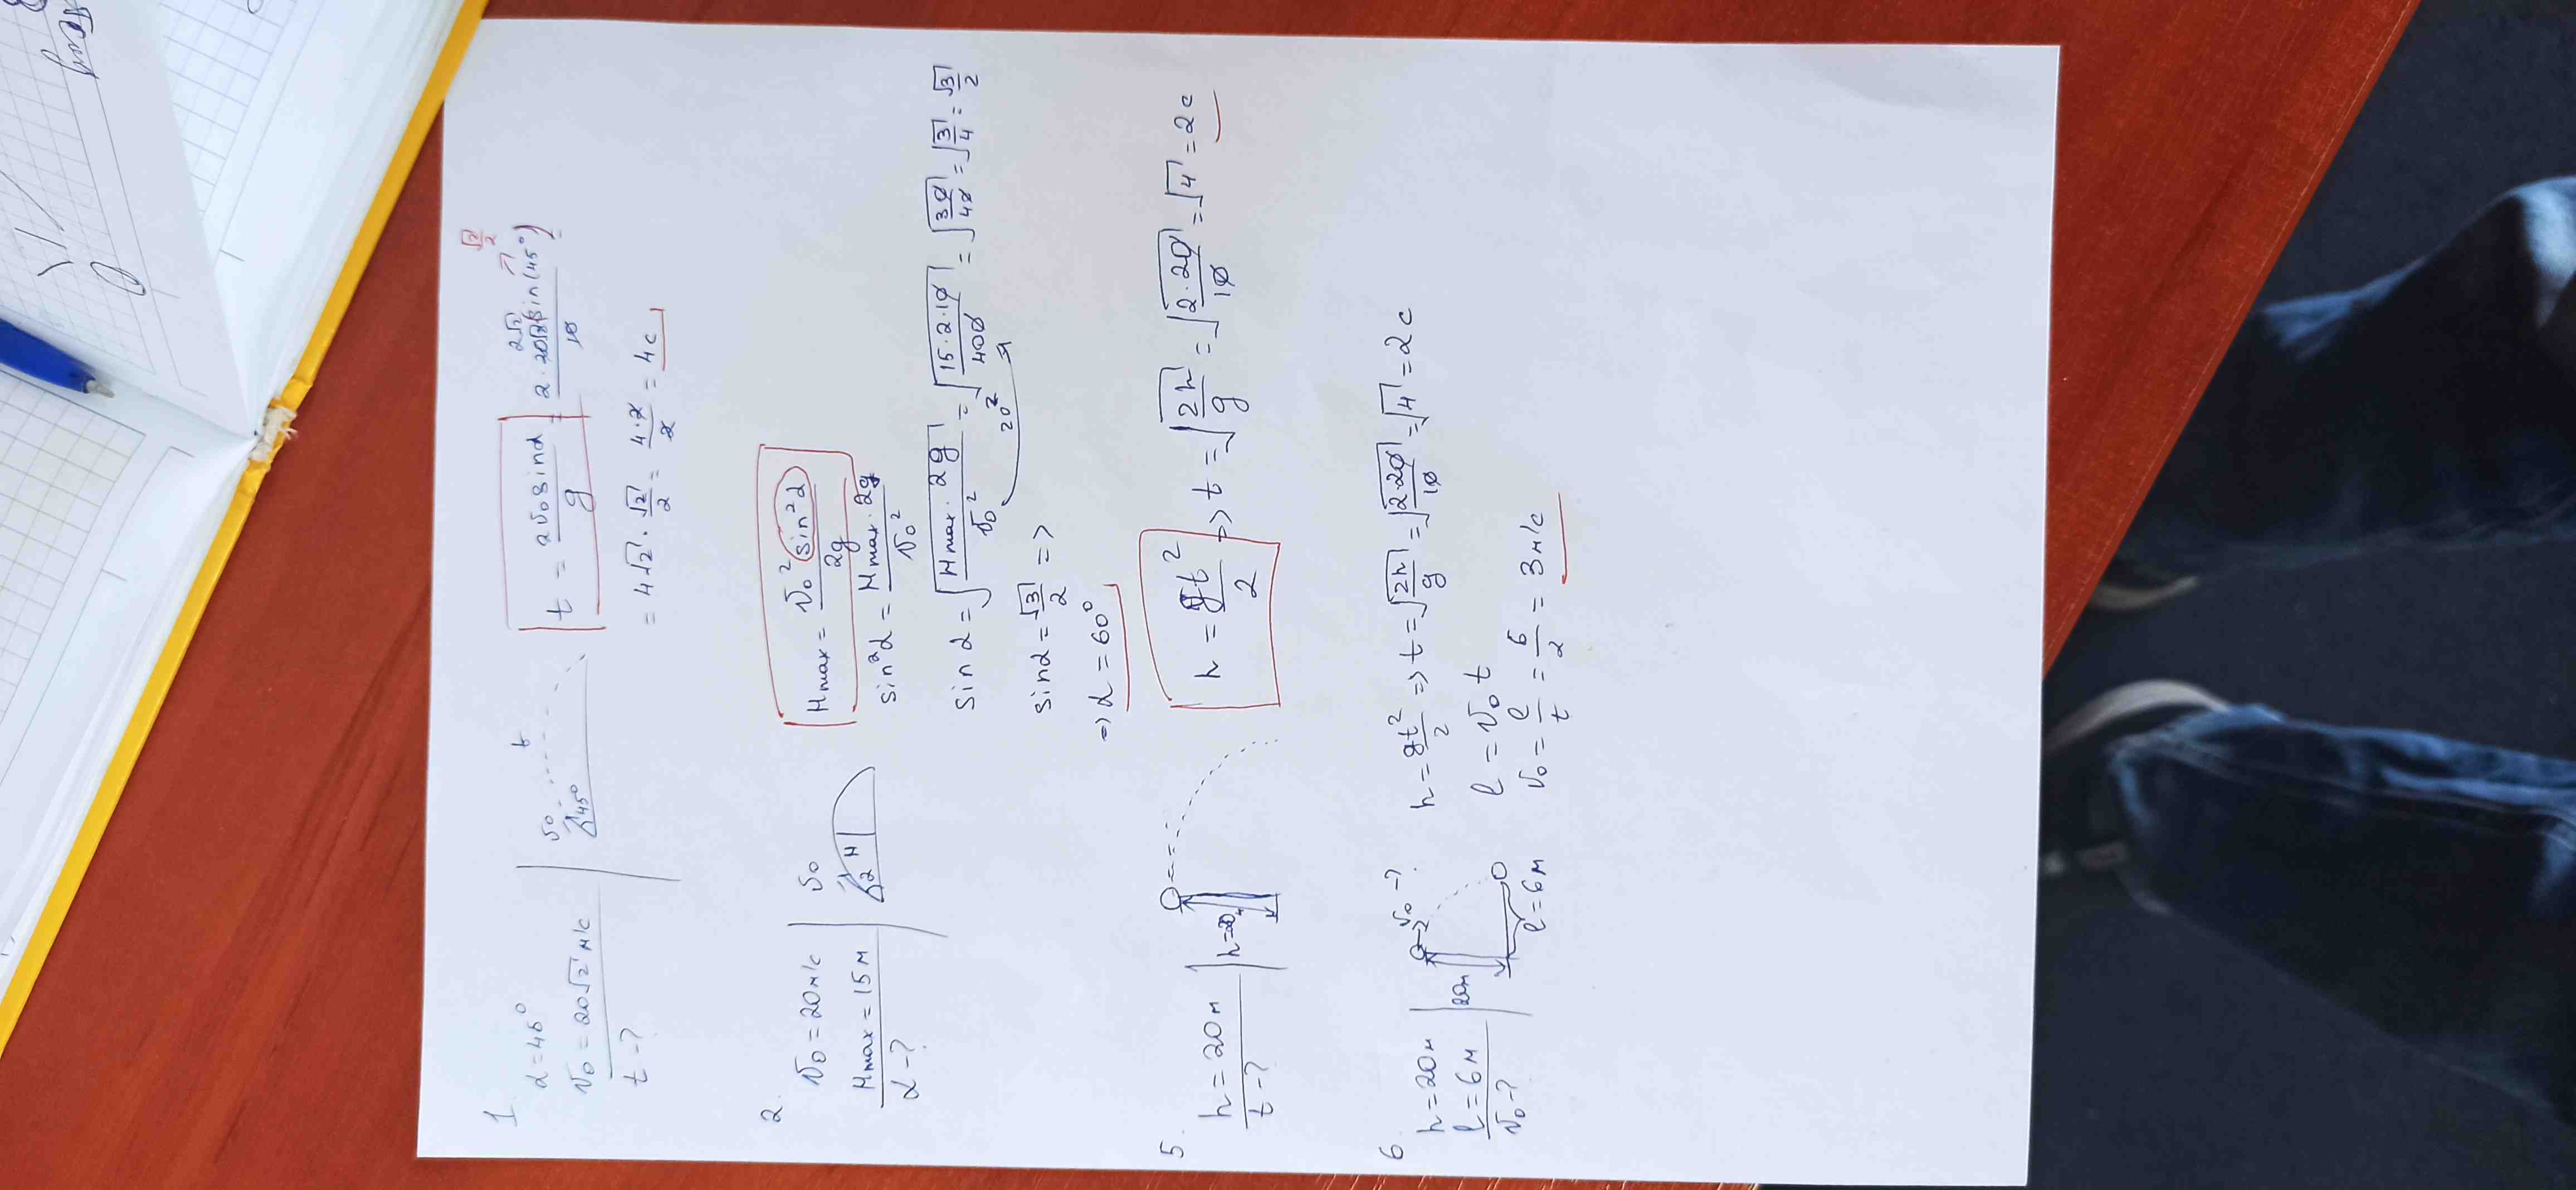 1
α=45°
v₀=20√2 м/с
t-?
v₀
45°
t
t = 2v₀sinα/g = 2·20√2·sin(45°)/10
2√2
√2/2
= 4√2·√2/2 = 4·2/2 = 4с
2.
v₀=20м/с
Hmax=15м
α-?
v₀
H
Hmax = v₀²sin²α/2g
sin²α = Hmax·2g/v₀²
sin α = √(Hmax·2g/v₀²) = √(15·2·10/400) = √(30/40) = √(3/4) = √3/2
20²
sinα = √3/2 =>
=> α = 60°
5
h=20м
t-?
h=20м
h = gt²/2 => t = √(2h/g) = √(2·20/10) = √4 = 2с
6
h=20м
l=6м
v₀-?
20м
v₀-?
l=6м
h = gt²/2 => t = √(2h/g) = √(2·20/10) = √4 = 2с
l = v₀t
v₀ = l/t = 6/2 = 3м/с